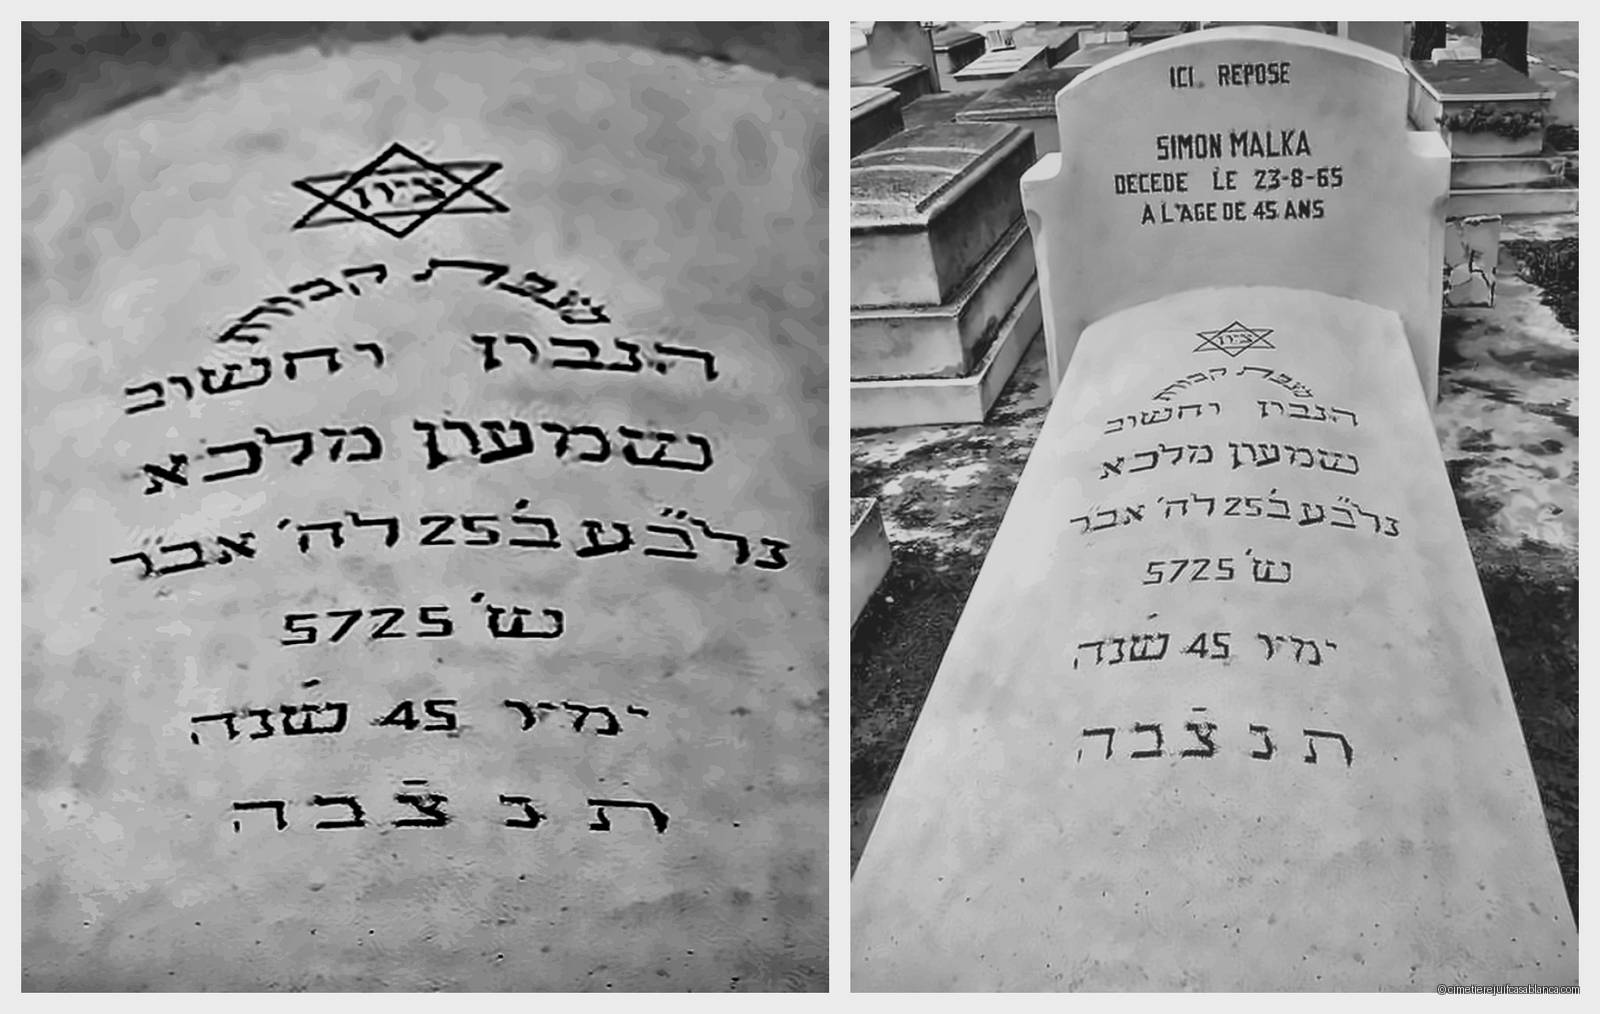 ציון
מצבת קבורת
הנבון וחשוב
שמעון מלכא
נלב״ע ב׳25 לח׳ אב
ש׳ 5725
ימיו 45 שנה
ת נ צ ב ה
ICI REPOSE
SIMON MALKA
DECEDE LE 23-8-65
A L'AGE DE 45 ANS
ציון
מצבת קבורת
הנבון וחשוב
שמעון מלכא
נלב״ע ב׳25 לח׳ אב
ש׳ 5725
ימיו 45 שנה
ת נ צ ב ה
©cimetierejuifcasablanca.com